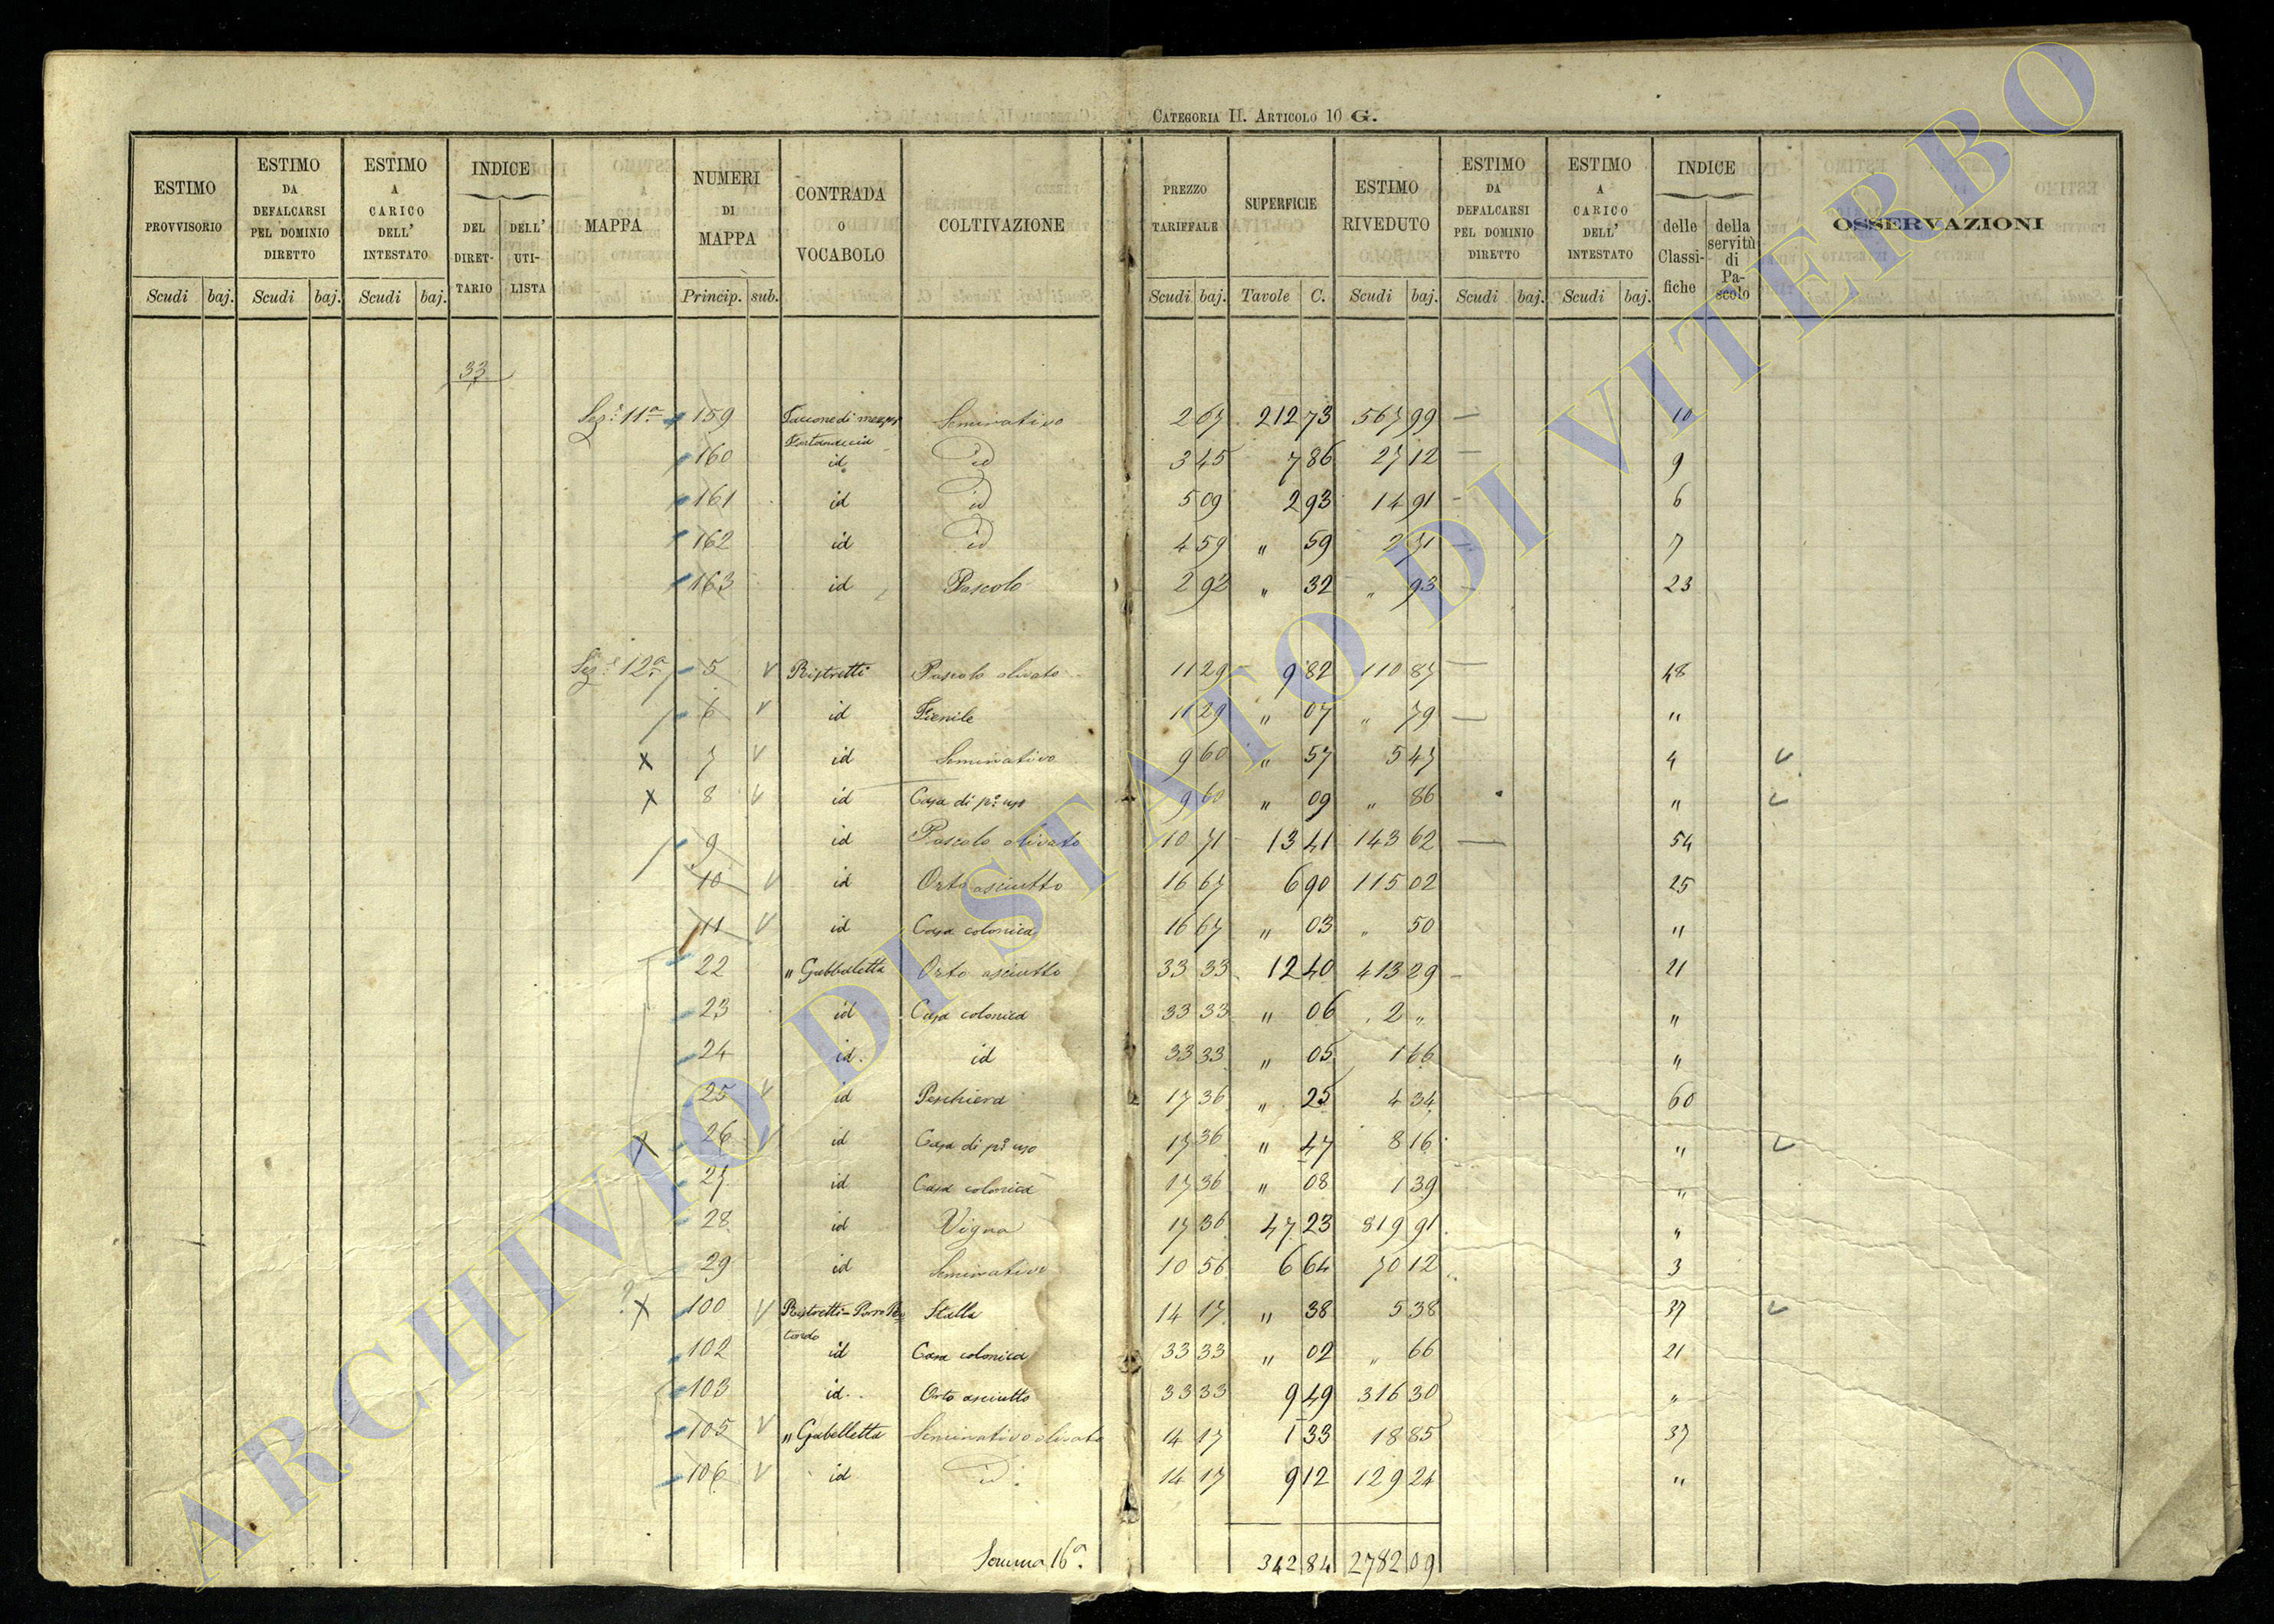 CATEGORIA II. ARTICOLO 10 G.
ESTIMO PROVVISORIO Scudi baj. ESTIMO DA DEFALCARSI PEL DOMINIO DIRETTO Scudi baj. ESTIMO A CARICO DELL' INTESTATO Scudi baj. INDICE DEL DIRETTARIO DELL' UTILISTA MAPPA NUMERI DI MAPPA Princip. sub. CONTRADA O VOCABOLO COLTIVAZIONE PREZZO TARIFFALE Scudi baj. SUPERFICIE Tavole C. ESTIMO RIVEDUTO Scudi baj. ESTIMO DA DEFALCARSI PEL DOMINIO DIRETTO Scudi baj. ESTIMO A CARICO DELL' INTESTATO Scudi baj. INDICE delle Classifiche della servitù di Pascolo OSSERVAZIONI
33
Sez.e 11a 159 di mezzo Seminativo 2 67 212 73 567 99 — 10
160 id id 3 45 7 86 27 12 — 9
161 id id 5 09 2 93 14 91 - 6
162 id id 4 59 " 59 2 71 — 7
163 id Pascolo 2 92 " 32 " 93 - 23
Sez.e 12a 5 V Ristretti Pascolo olivato 11 29 9 82 110 87 — 48
6 V id Fienile 11 29 " 07 " 79 — "
X 7 V id Seminativo 9 60 " 57 5 47 4 V
X 8 V id Casa di p.o uso 9 60 " 09 " 86 " V
9 id Pascolo olivato 10 71 13 41 143 62 — 54
10 V id Orto asciutto 16 67 6 90 115 02 25
11 V id Casa colonica 16 67 " 03 " 50 "
22 " Gabbelletta Orto asciutto 33 33 12 40 413 29 - 21
23 id Casa colonica 33 33 " 06 2 " "
24 id id 33 33 " 05 1 66 "
25 V id Peschiera 17 36 " 25 4 34 60
X 26 V id Casa di p.o uso 17 36 " 47 8 16 " V
27 id Casa colonica 17 36 " 08 1 39 "
28 id Vigna 17 36 47 23 819 91 "
29 id Seminativo 10 56 6 64 70 12 3
? X 100 V Ristretti - Stalla 14 17 " 38 5 38 37 V
102 id Casa colonica 33 33 " 02 " 66 21
103 id Orto asciutto 33 33 9 49 316 30 "
105 V " Gabelletta Seminativo olivato 14 17 1 33 18 85 37
106 V id id 14 17 9 12 129 24 "
Somma 16a. 342 84 2782 09
ARCHIVIO DI STATO DI VITERBO